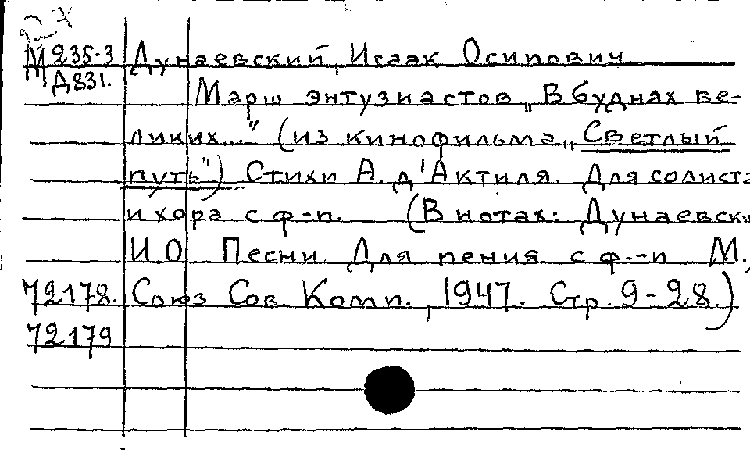 М235-3 Дунаевский, Исаак Осипович
Д831.
Марш энтузиастов „В буднях ве-
ликих..." (из кинофильма „Светлый
путь") Стихи А. д'Актиля. Для солиста
и хора с ф-п. (В нотах: Дунаевски
И.О Песни. Для пения с ф.-п М.,
72178. Союз Сов Комп., 1947. Стр. 9-28.)
72179